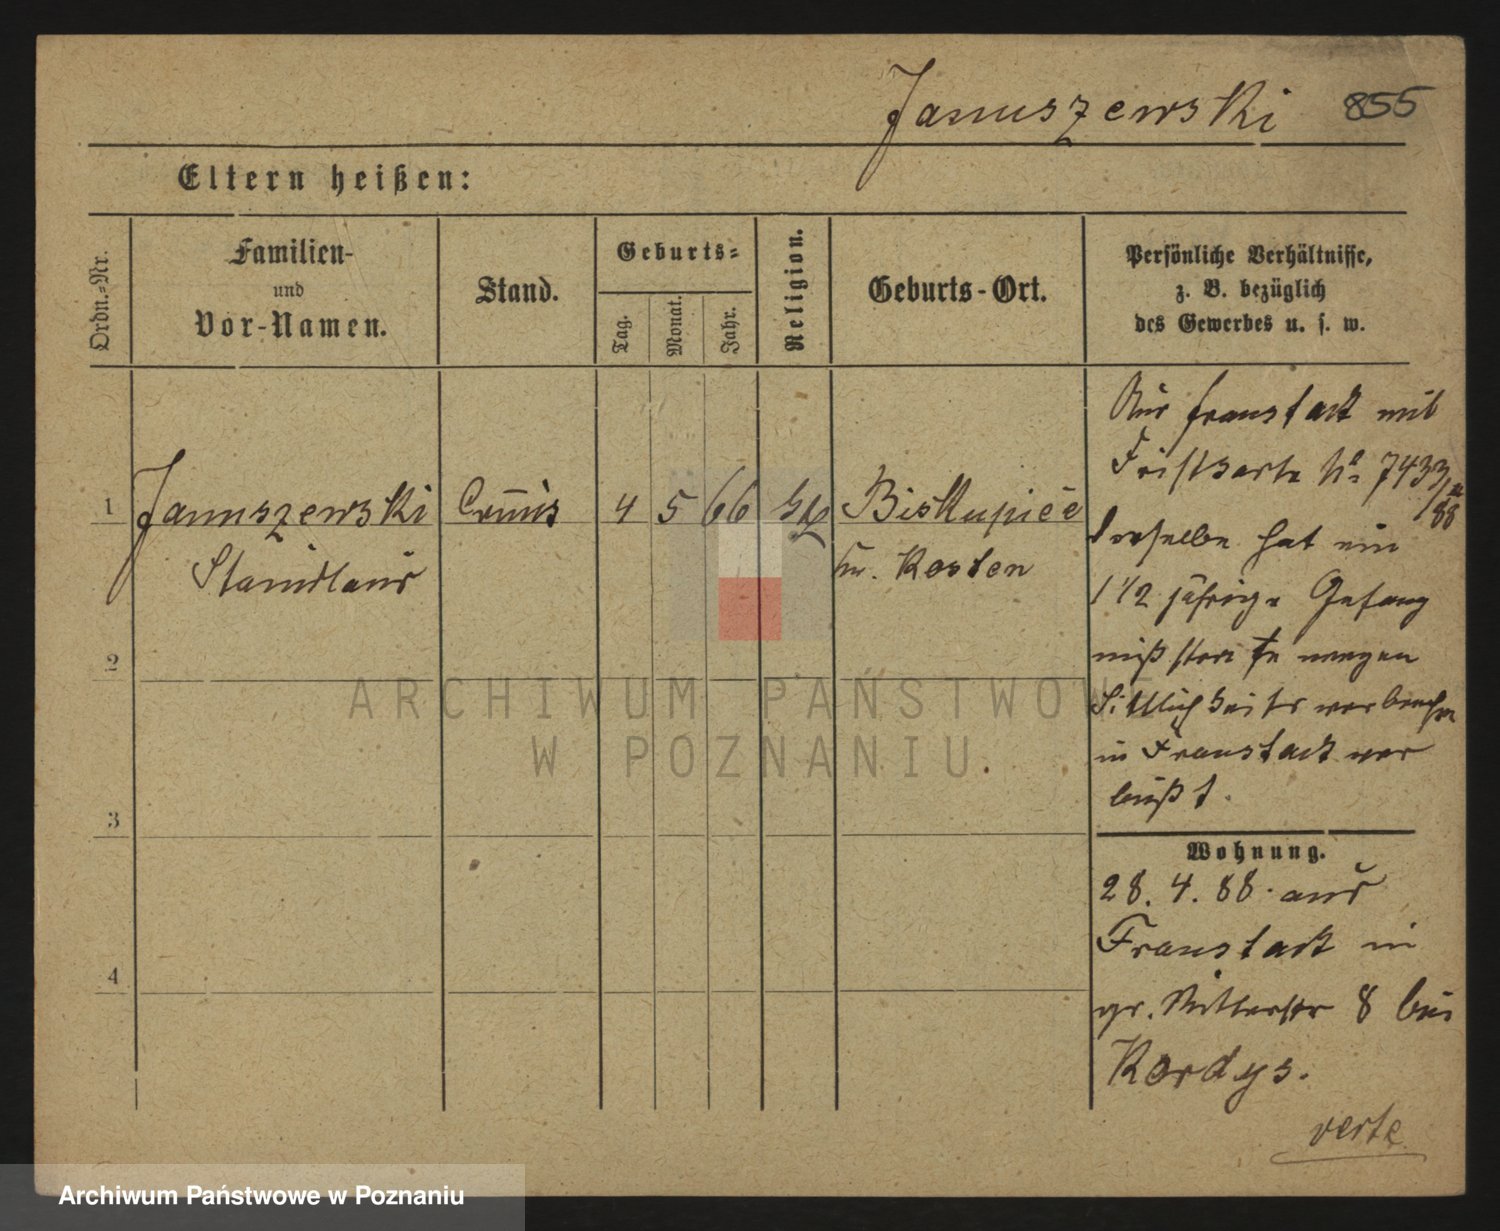 Januszewski 855
Eltern heißen:
Ordn.-Nr.
Familien-
und
Vor-Namen.
Stand.
Geburts-
Tag.
Monat.
Jahr.
Religion.
Geburts-Ort.
Persönliche Verhältnisse,
z. B. bezüglich
des Gewerbes u. s. w.
1 Januszewski Commis 4 5 66 Biskupice
Stanislaus Kr. Kosten
2
3
4
Aus Fraustadt mit
No 7433/88
Derselbe hat ein
1 1/2 jährige Gefäng
niß strafe wegen
Sittlichkeits verbrechen
in Fraustadt ver
büßt.
Wohnung.
28. 4. 88. aus
Fraustadt in
gr. Ritterstr 8 bei
Kordys.
verte
ARCHIWUM PAŃSTWOWE
W POZNANIU.
Archiwum Państwowe w Poznaniu